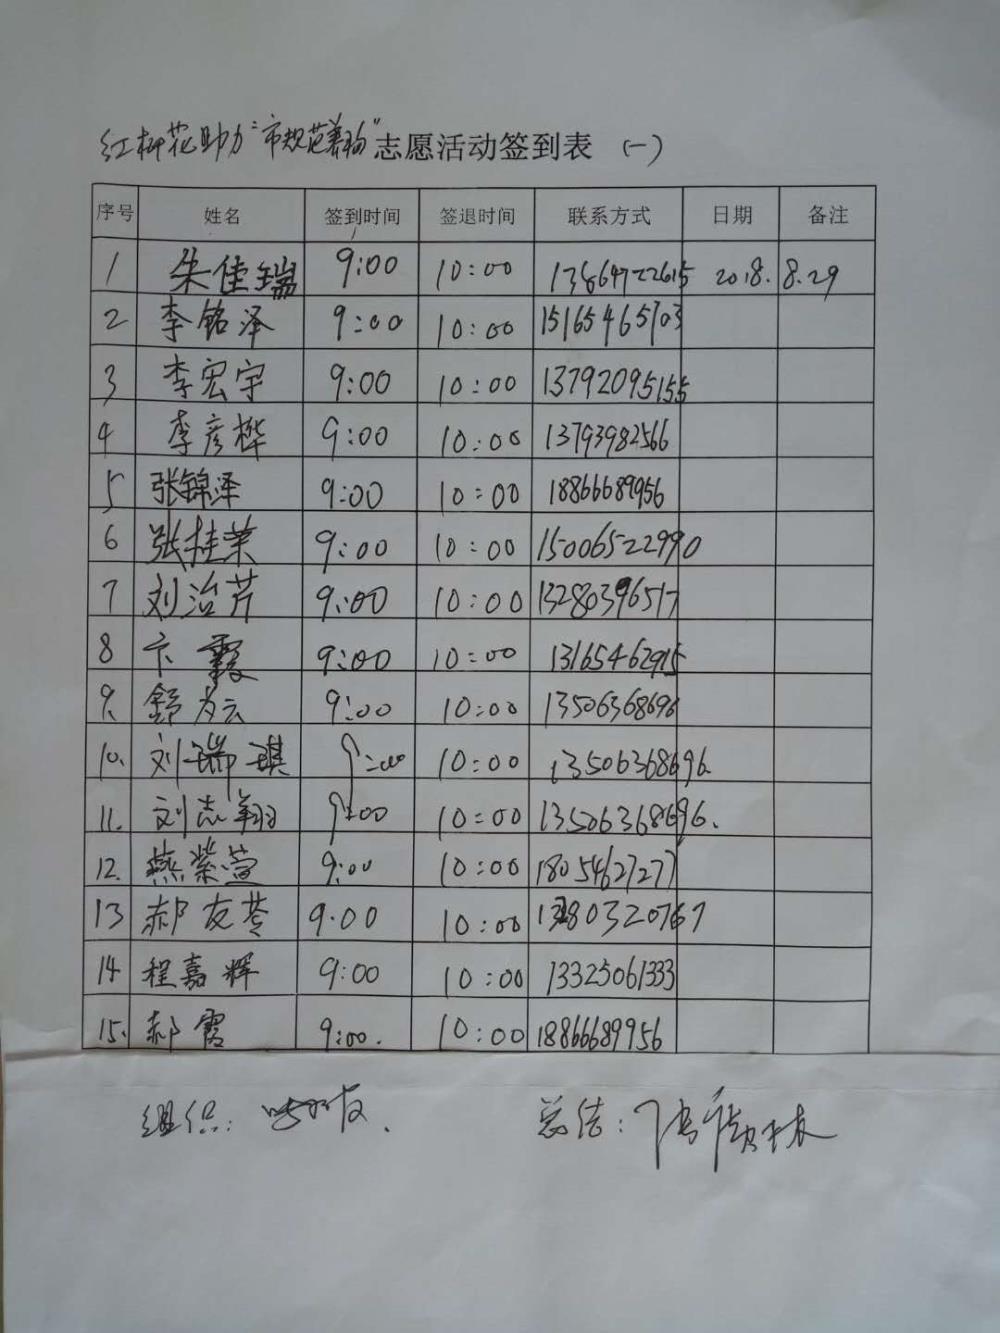 红柳花助力"市规范养犬"志愿活动签到表 (一)
序号 姓名 签到时间 签退时间 联系方式 日期 备注
1 朱佳瑞 9:00 10:00 13864722615 2018.8.29
2 李铭泽 9:00 10:00 15165465703
3 李宏宇 9:00 10:00 13792095155
4 李彦桦 9:00 10:00 13793982566
5 张锦泽 9:00 10:00 18866689956
6 张桂荣 9:00 10:00 15006522990
7 刘治芹 9:00 10:00 13280396517
8 卞霞 9:00 10:00 13165462915
9. 舒为云 9:00 10:00 13506368696
10. 刘瑞琪 9:00 10:00 13506368696.
11. 刘志翔 9:00 10:00 13506368696.
12. 燕紫萱 9:00 10:00 18054627277
13 郝友苓 9.00 10:00 13280320767
14 程嘉辉 9:00 10:00 13325061333
15. 郝霞 9:00. 10:00 18866689956
组织: 总结: